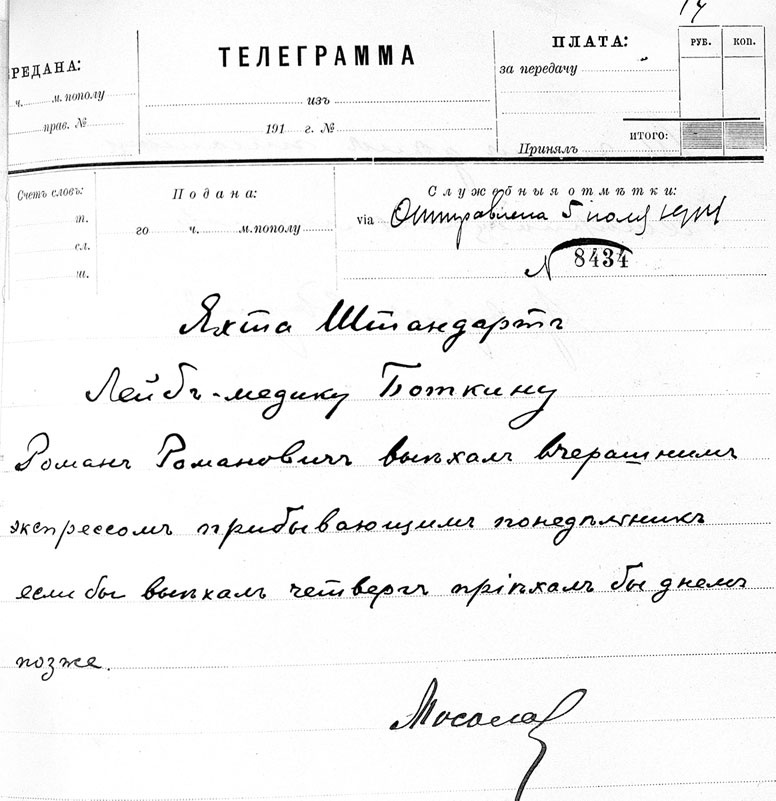 14
РЕДАНА:
ТЕЛЕГРАММА
ПЛАТА:
РУБ. КОП.
за передачу
ч. м. пополу
изъ
прав. №
191 г. №
ИТОГО:
Принялъ
Счетъ словъ:
Подана:
Служебныя отмѣтки:
т.
го ч. м. пополу
via Отправлена 5 іюля
сл.
№ 8434
ш.
Яхта Штандартъ
Лейбъ-медику Боткину
Романъ Романовичъ выѣхалъ вчерашнимъ
экспрессомъ прибывающимъ понедѣльникъ
если бы выѣхалъ четвергъ пріѣхалъ бы днемъ
позже.
Мосолов